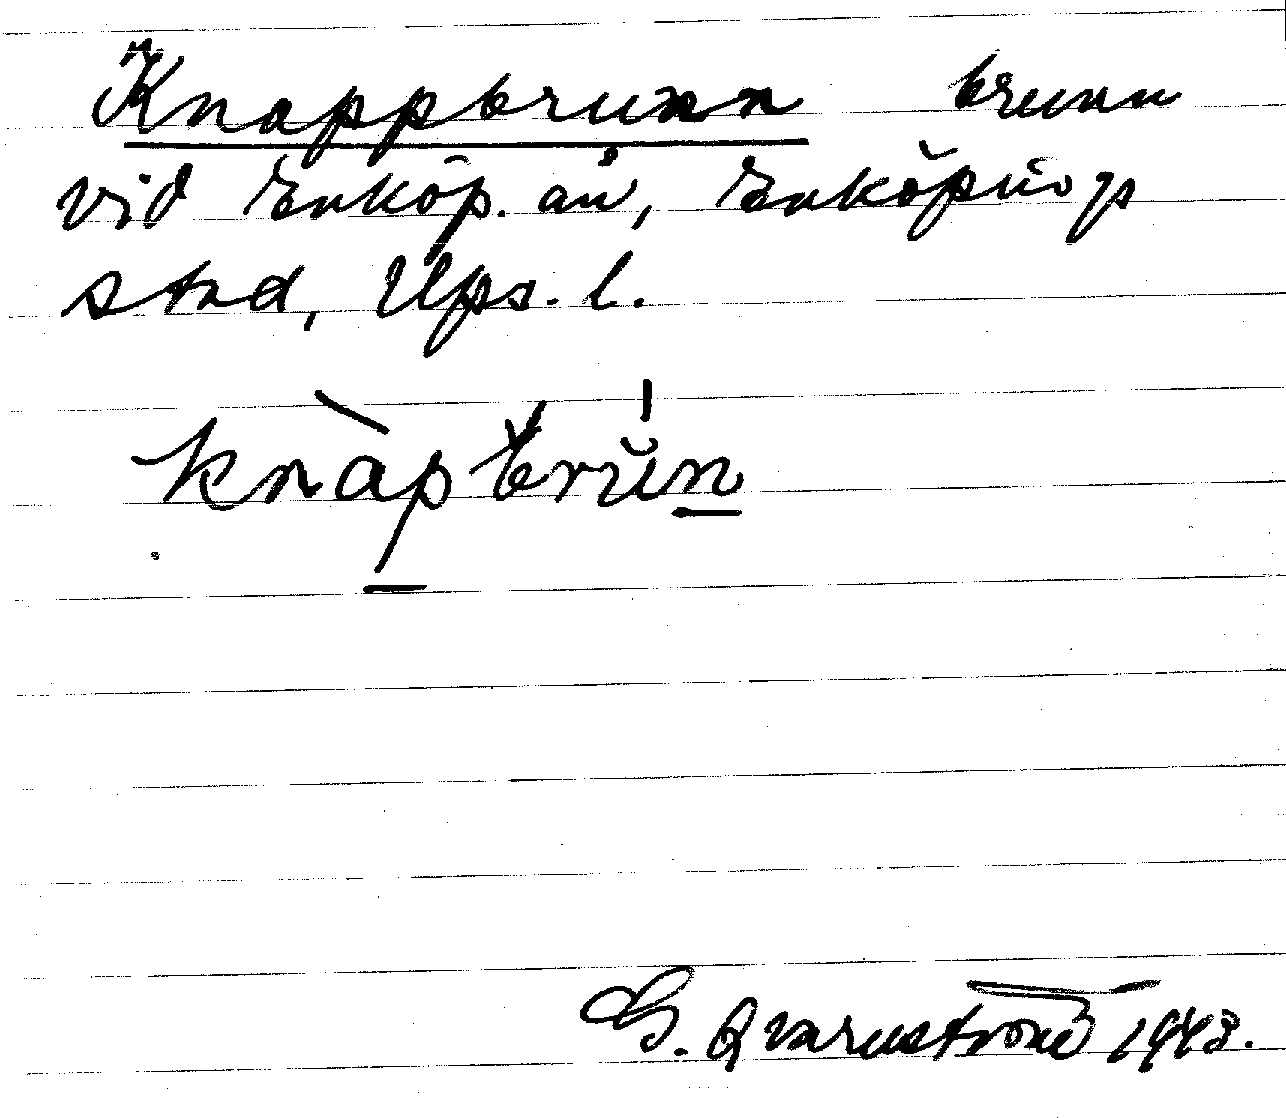 Knappbrunn brunn
vid Enköp. ån, Enköpings
stad, Ups. l.
knàpbrŭn
G. Qvarnström 1943.